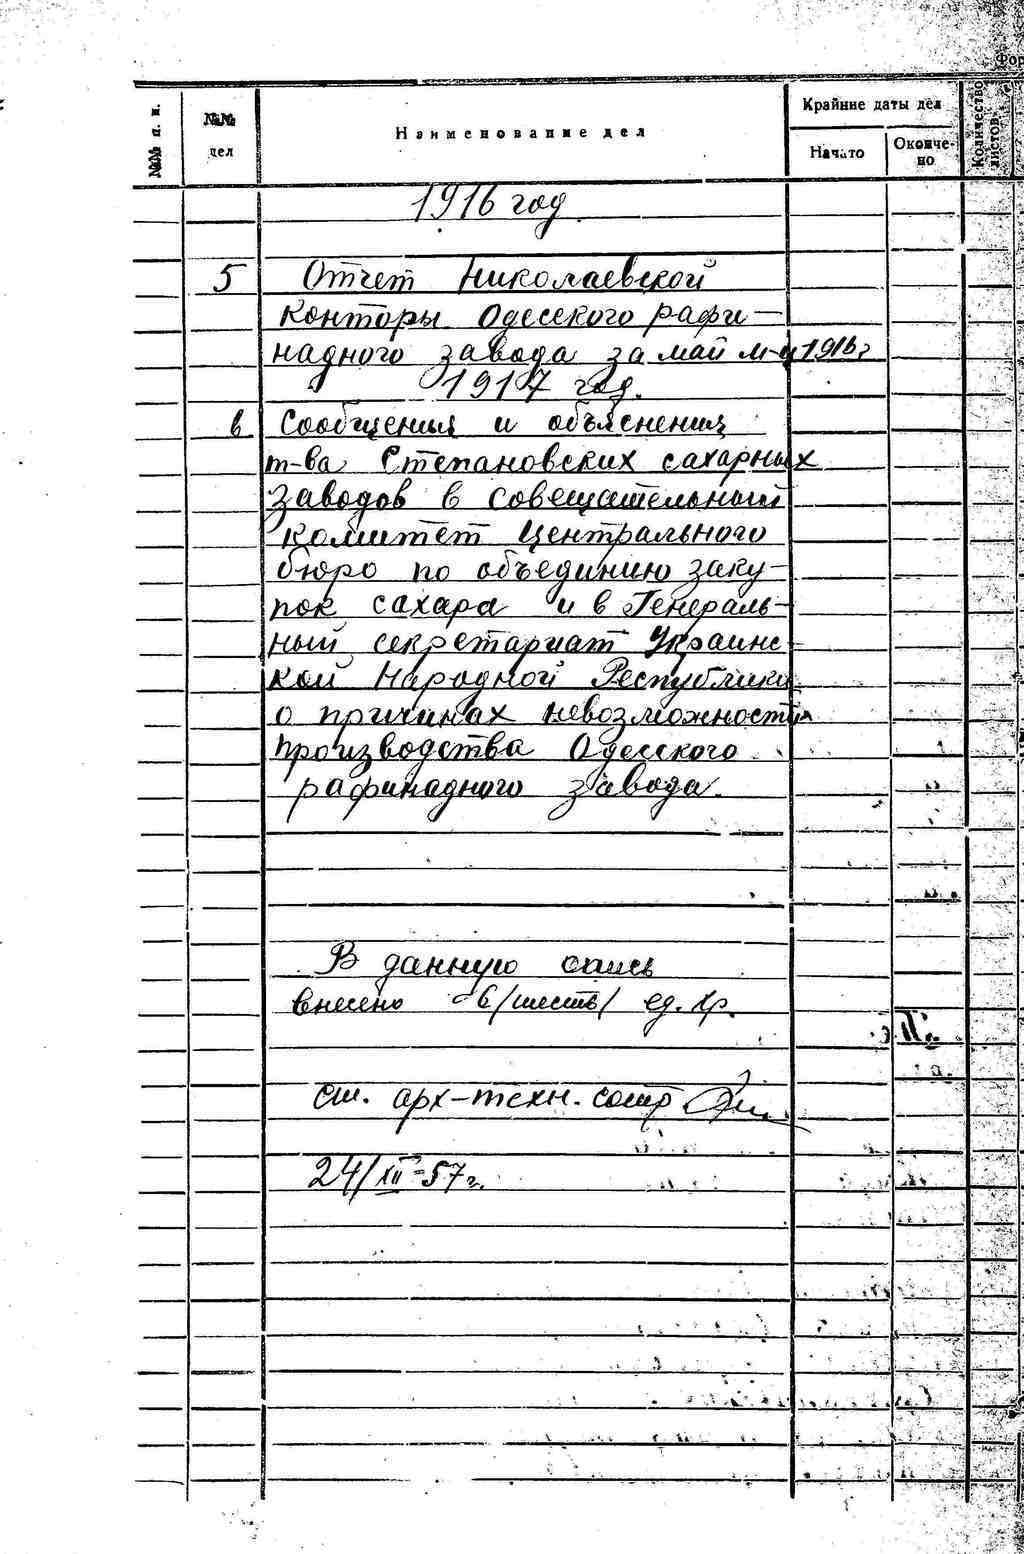 Фор
№№ п. п.
№№ дел
Наименование дел
Крайние даты дел
Начато
Окончено
Количество листов
1916 год
5 Отчет Николаевской
конторы Одесского рафи-
надного завода за май м-ц 1916 г
1917 год.
6 Сообщения и объяснения
т-ва Степановских сахарных
заводов в совещательный
комитет Центрального
бюро по объединию заку-
пок сахара и в Генераль-
ный секретариат Украинс
кой Народной Республики
о причинах невозможности
производства Одесского
рафинадного завода.
В данную опись
внесено - 6 /шесть/ ед. хр.
ст. арх-техн. сотр
24/XII-57 г.